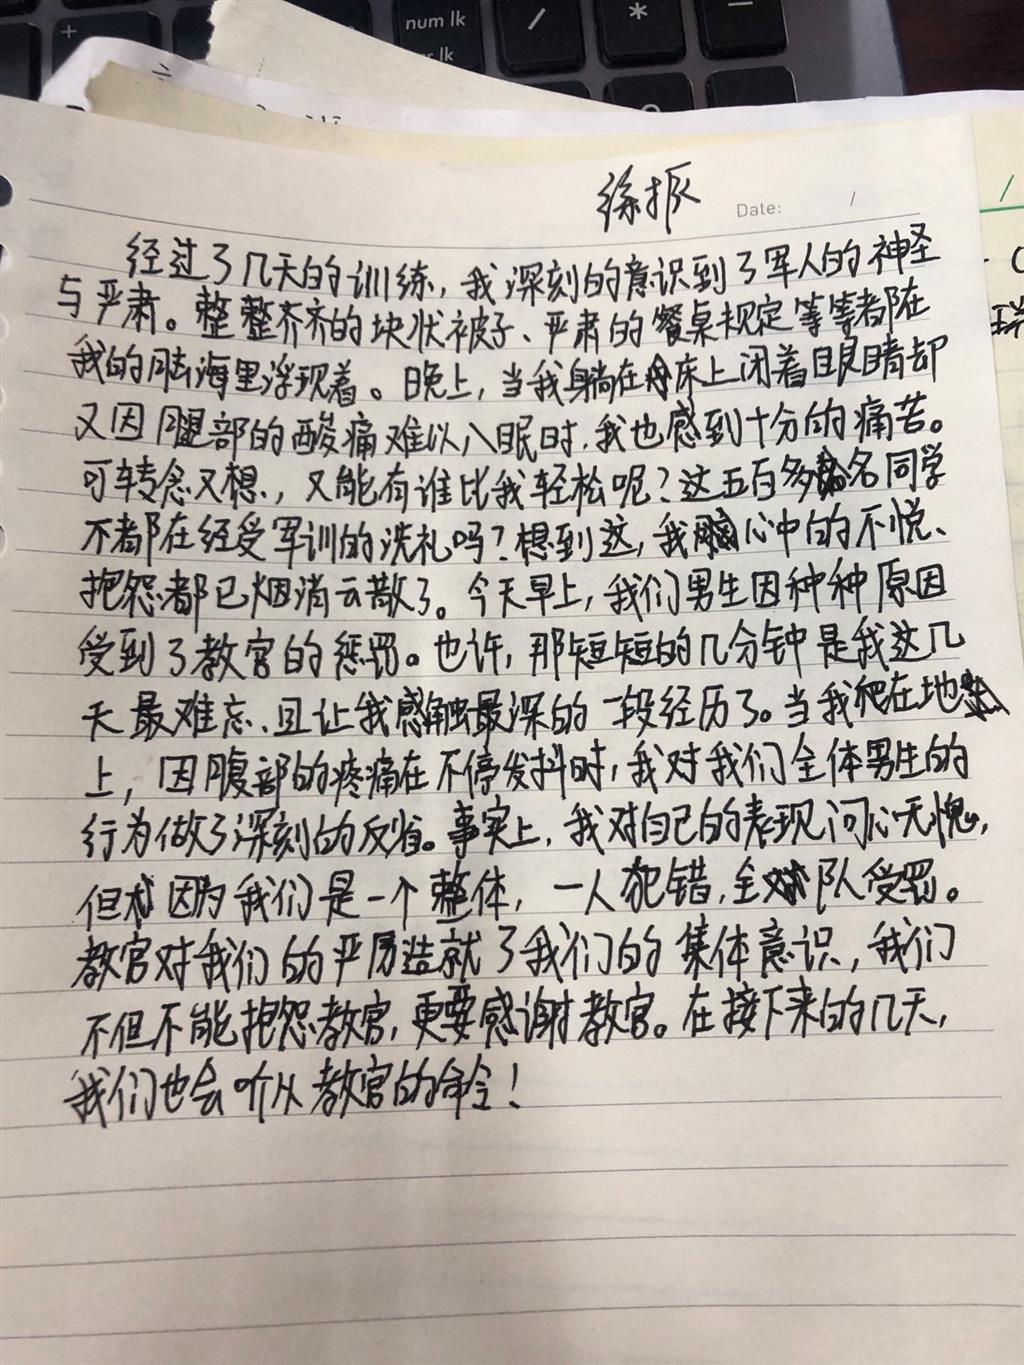 num lk
徐振
Date: /
经过了几天的训练，我深刻的意识到了军人的神经
与严肃。整整齐齐的块状被子、严肃的餐桌规定等等都在
我的脑海里浮现着。晚上，当我躺在床上闭着眼睛却
又因腿部的酸痛难以入眠时，我也感到十分的痛苦。
可转念又想，又能有谁比我轻松呢？这五百多名同学
不都在经受军训的洗礼吗？想到这，我心中的不悦、
抱怨都已烟消云散了。今天早上，我们男生因种种原因
受到了教官的惩罚。也许，那短短的几分钟是我这几
天最难忘、且让我感触最深的一段经历了。当我爬在地
上，因腹部的疼痛在不停发抖时，我对我们全体男生的
行为做了深刻的反省。事实上，我对自己的表现问心无愧，
但因为我们是一个整体，一人犯错，全队受罚。
教官对我们的严厉造就了我们的集体意识，我们
不但不能抱怨教官，更要感谢教官。在接下来的几天，
我们也会听从教官的命令！